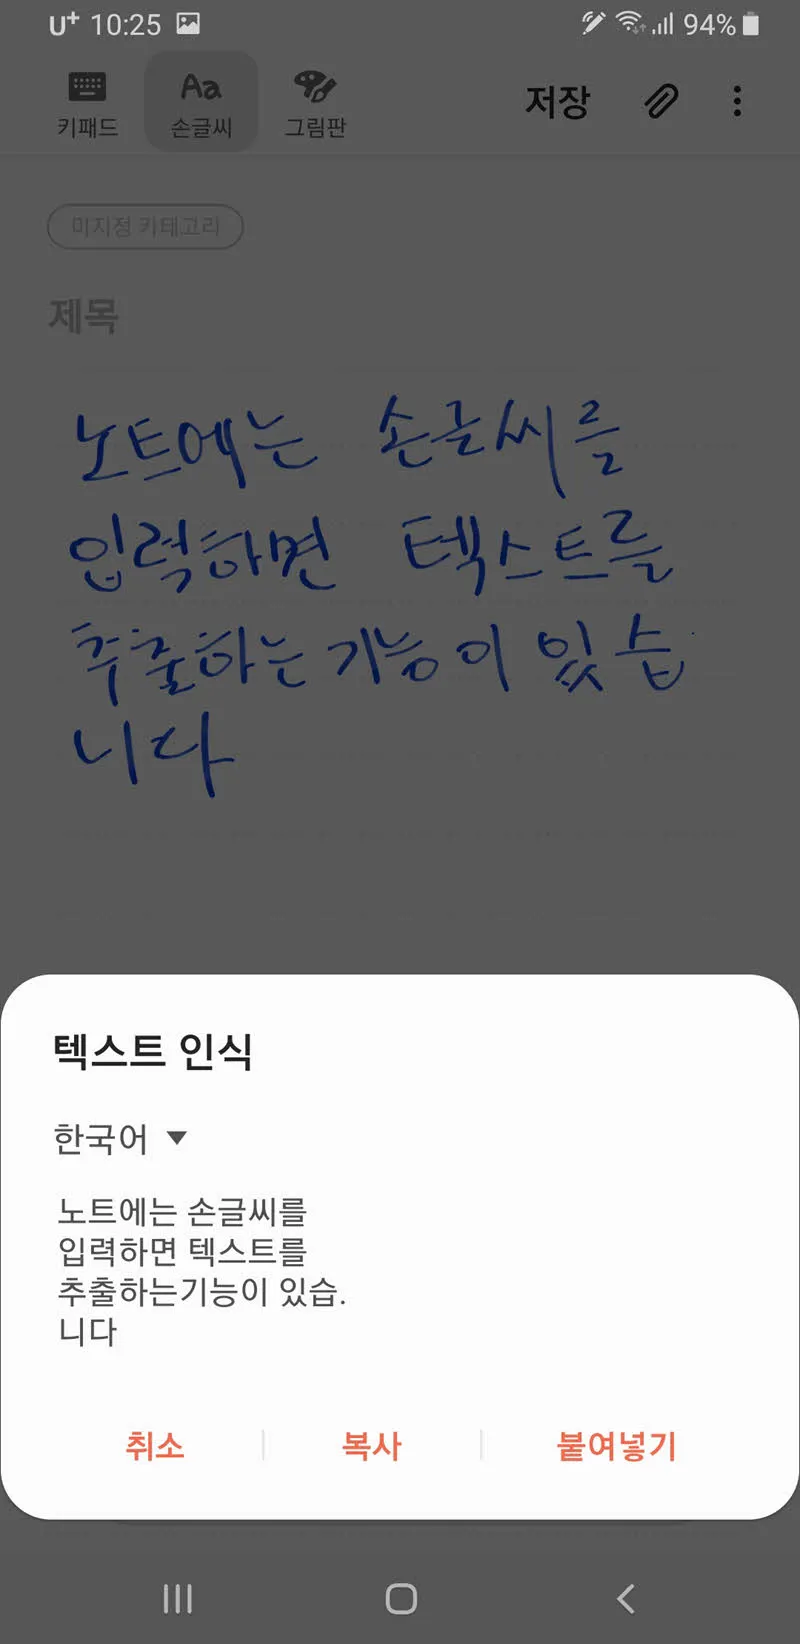 U+ 10:25 94%
키패드 손글씨 그림판 저장
미지정 카테고리
제목
노트에는 손글씨를
입력하면 텍스트를
추출하는기능이 있습
니다
텍스트 인식
한국어
노트에는 손글씨를
입력하면 텍스트를
추출하는기능이 있습.
니다
취소 복사 붙여넣기